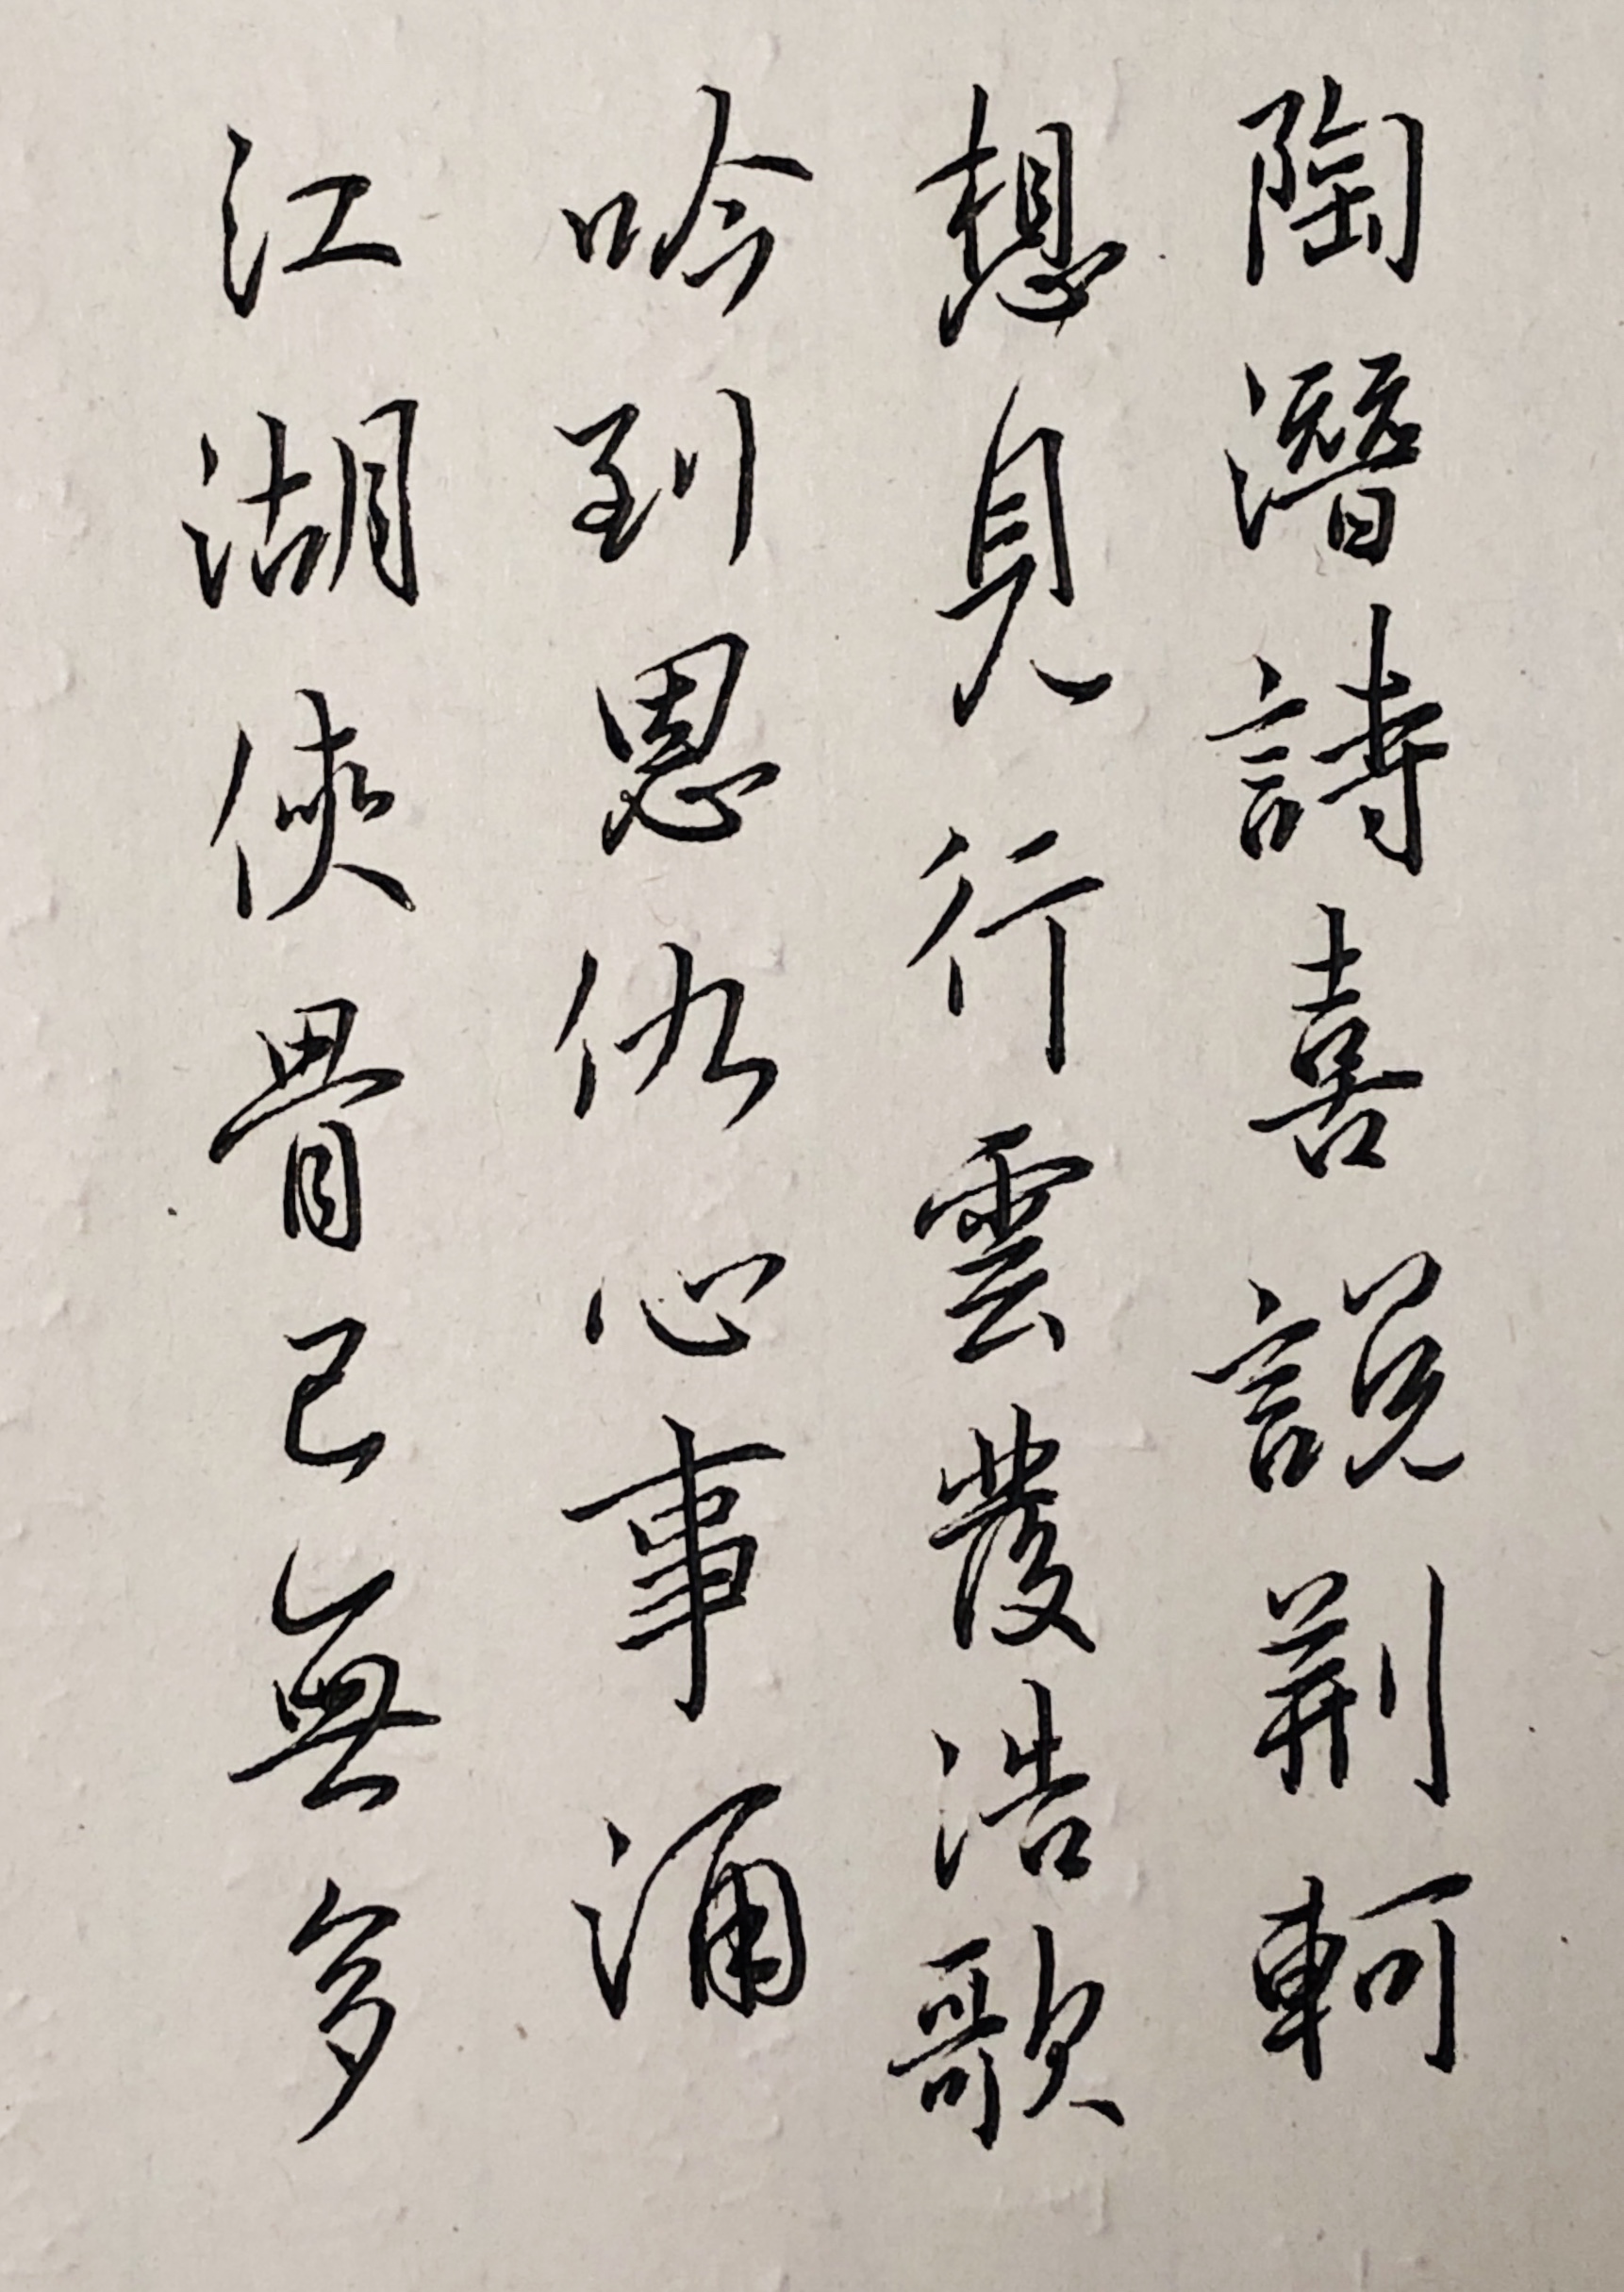 陶潛詩喜説荆軻
想見行雲發浩歌
吟到恩仇心事涌
江湖俠骨已無多